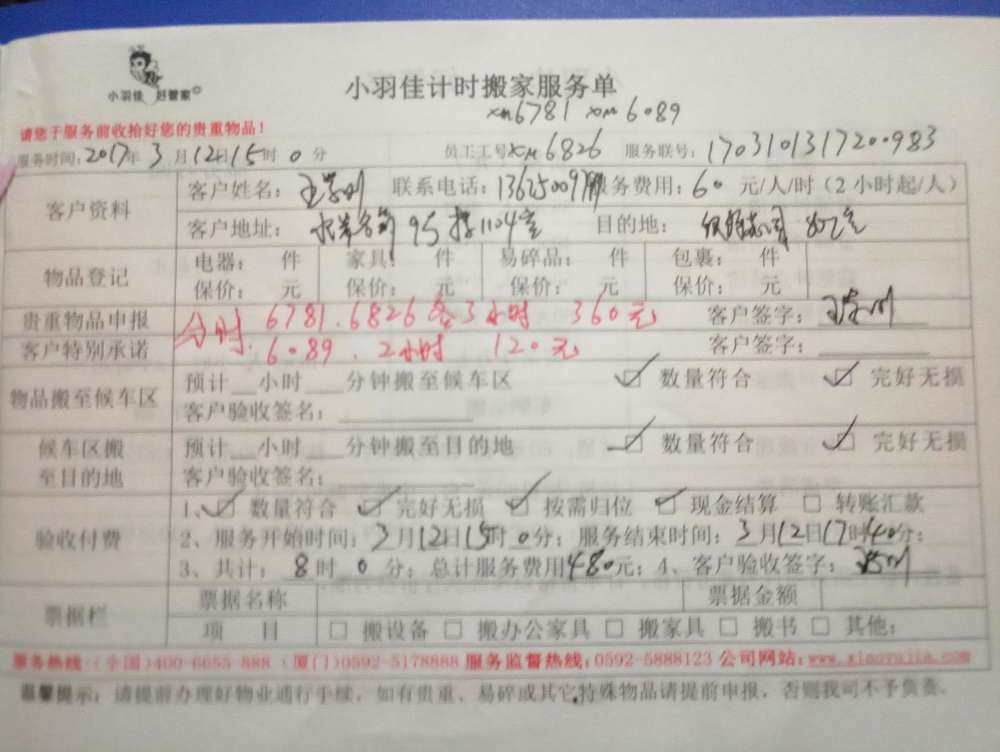 小羽佳 好管家
小羽佳计时搬家服务单
xm6781 xm6089
请您于服务前收拾好您的贵重物品！
服务时间：2017年3月12日15时0分 员工工号xm6826 服务联号：1703101317200983
客户资料
客户姓名： 联系电话：136250097 服务费用：60元/人/时（2小时起/人）
客户地址： 95 1104室 目的地：
物品登记
电器： 件 家具： 件 易碎品： 件 包裹： 件
保价： 元 保价： 元 保价： 元 保价： 元
贵重物品申报 分时. 6781.6826各3小时 360元 客户签字：
客户特别承诺 6089.2小时 120元 客户签字：
物品搬至候车区
预计__小时__分钟搬至候车区 ☑ 数量符合 ☑ 完好无损
客户验收签名：
候车区搬至目的地
预计__小时__分钟搬至目的地 ☑ 数量符合 ☑ 完好无损
客户验收签名：
验收付费
1、☑ 数量符合 ☑ 完好无损 ☑ 按需归位 ☑ 现金结算 □ 转账汇款
2、服务开始时间：3月12日15时0分；服务结束时间：3月12日17时40分；
3、共计：8时0分；总计服务费用480元；4、客户验收签字：
票据栏
票据名称 票据金额
项 目 □ 搬设备 □ 搬办公家具 □ 搬家具 □ 搬书 □ 其他：
服务热线：（全国）400-6655-888（厦门）0592-5178888 服务监督热线：0592-5888123 公司网站：www.xiaoyujia.com
温馨提示：请提前办理好物业通行手续，如有贵重、易碎或其它特殊物品请提前申报，否则我司不予负责。